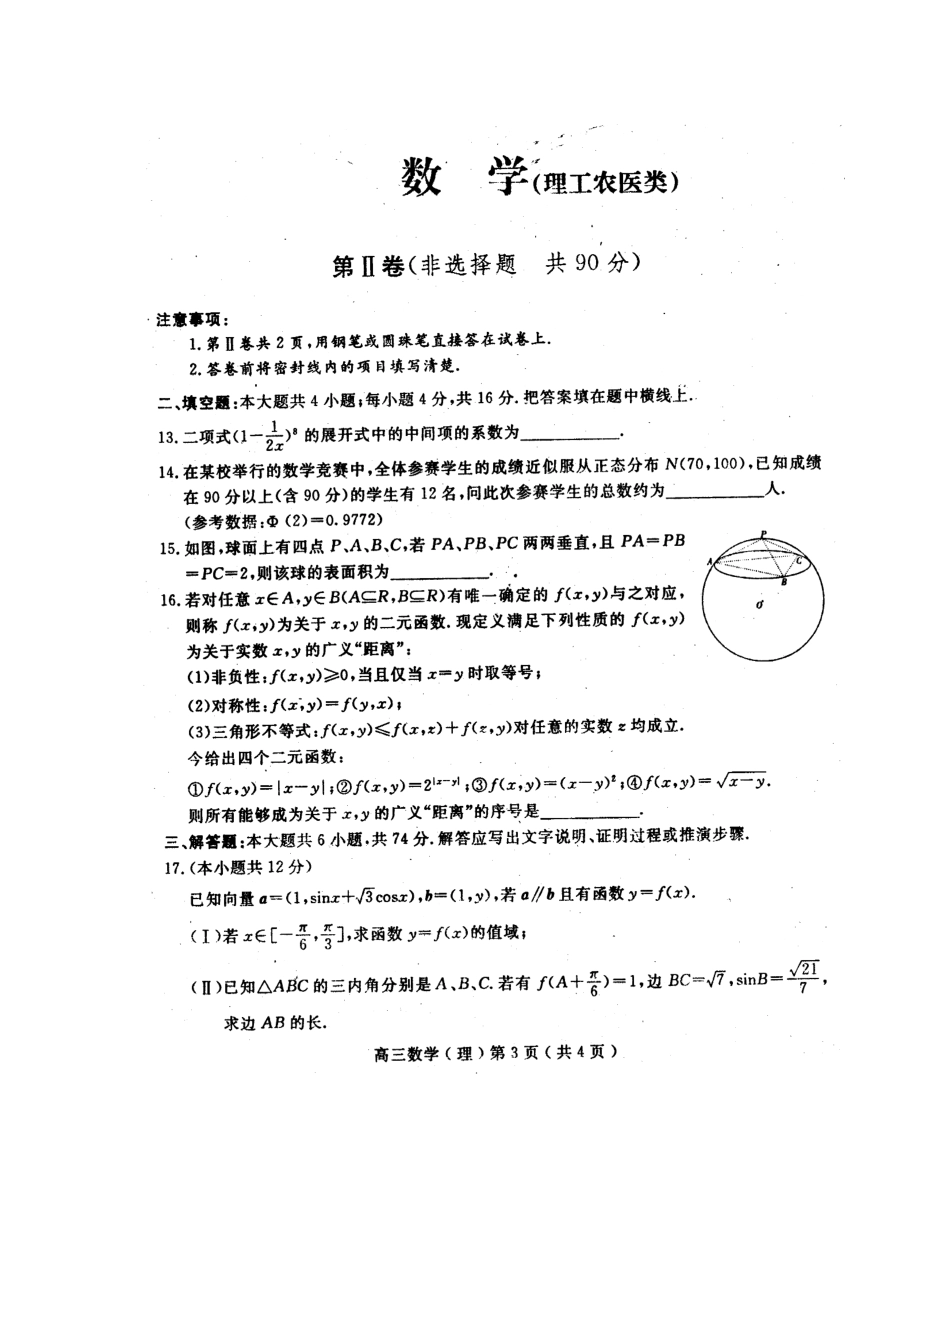 数 学(理工农医类)
第Ⅱ卷(非选择题 共90分)
注意事项:
1.第Ⅱ卷共2页,用钢笔或圆珠笔直接答在试卷上.
2.答卷前将密封线内的项目填写清楚.
二、填空题:本大题共4小题;每小题4分,共16分.把答案填在题中横线上.
13.二项式(1-\frac{1}{2x})⁸的展开式中的中间项的系数为________.
14.在某校举行的数学竞赛中,全体参赛学生的成绩近似服从正态分布N(70,100),已知成绩
在90分以上(含90分)的学生有12名,问此次参赛学生的总数约为________人.
(参考数据:Φ(2)=0.9772)
15.如图,球面上有四点P、A、B、C,若PA、PB、PC两两垂直,且PA=PB
=PC=2,则该球的表面积为________.
P
A
C
B
O
16.若对任意x∈A,y∈B(A⊆R,B⊆R)有唯一确定的f(x,y)与之对应,
则称f(x,y)为关于x,y的二元函数.现定义满足下列性质的f(x,y)
为关于实数x,y的广义“距离”:
(1)非负性:f(x,y)≥0,当且仅当x=y时取等号;
(2)对称性:f(x,y)=f(y,x);
(3)三角形不等式:f(x,y)≤f(x,z)+f(z,y)对任意的实数z均成立.
今给出四个二元函数:
①f(x,y)=|x-y|;②f(x,y)=2^{|x-y|};③f(x,y)=(x-y)²;④f(x,y)=√(x-y).
则所有能够成为关于x,y的广义“距离”的序号是________.
三、解答题:本大题共6小题,共74分.解答应写出文字说明、证明过程或推演步骤.
17.(本小题共12分)
已知向量a=(1,sinx+√3cosx),b=(1,y),若a∥b且有函数y=f(x).
(Ⅰ)若x∈[-\frac{π}{6},\frac{π}{3}],求函数y=f(x)的值域;
(Ⅱ)已知△ABC的三内角分别是A、B、C.若有f(A+\frac{π}{6})=1,边BC=√7,sinB=\frac{√21}{7},
求边AB的长.
高三数学(理)第3页(共4页)